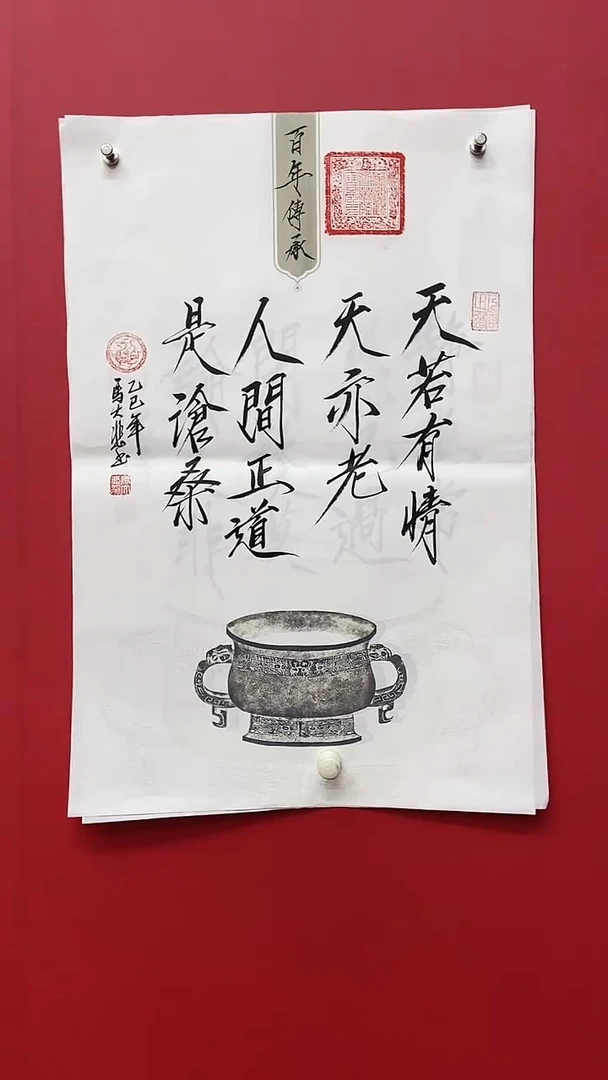 百年傳承
天若有情
天亦老
人間正道
是滄桑
乙巳年
馬大悲书